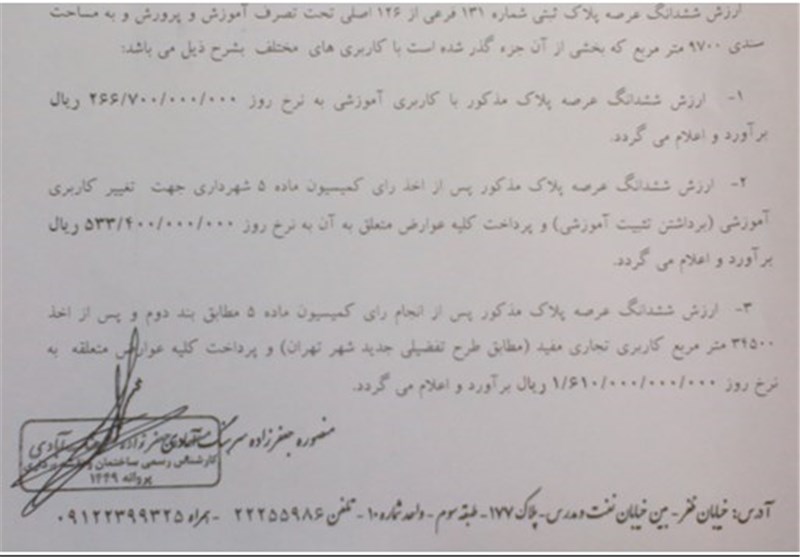 ارزش ششدانگ عرصه پلاک ثبتی شماره ۱۳۱ فرعی از ۱۲۶ اصلی تحت تصرف آموزش و پرورش و به مساحت
سندی ۹۷۰۰ متر مربع که بخشی از آن جزء گذر شده است با کاربری های مختلف بشرح ذیل می باشد:
۱- ارزش ششدانگ عرصه پلاک مذکور با کاربری آموزشی به نرخ روز ۲۶۶/۷۰۰/۰۰۰/۰۰۰ ریال
برآورد و اعلام می گردد.
۲- ارزش ششدانگ عرصه پلاک مذکور پس از اخذ رای کمیسیون ماده ۵ شهرداری جهت تغییر کاربری
آموزشی (برداشتن تثبیت آموزشی) و پرداخت کلیه عوارض متعلق به آن به نرخ روز ۵۳۳/۴۰۰/۰۰۰/۰۰۰ ریال
برآورد و اعلام می گردد.
۳- ارزش ششدانگ عرصه پلاک مذکور پس از انجام رای کمیسیون ماده ۵ مطابق بند دوم و پس از اخذ
۳۴۵۰۰ متر مربع کاربری تجاری مفید (مطابق طرح تفضیلی جدید شهر تهران) و پرداخت کلیه عوارض متعلقه به
نرخ روز ۱/۶۱۰/۰۰۰/۰۰۰/۰۰۰ ریال برآورد و اعلام می گردد.
منصوره جعفرزاده سرسنگ آبادی
کارشناس رسمی ساختمان و
پروانه ۱۴۴۹
آدرس: خیابان ظفر - بین خیابان نفت و مدرس - پلاک ۱۷۷ - طبقه سوم - واحد شماره ۱۰ - تلفن ۲۲۲۵۵۹۸۶ - همراه ۰۹۱۲۲۳۹۹۳۲۵